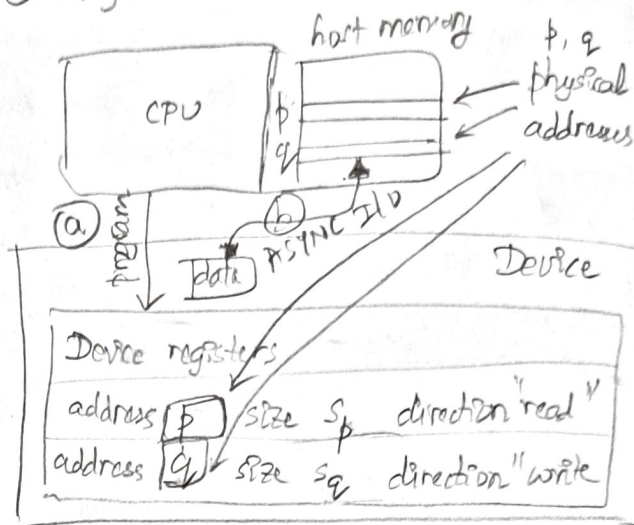 host memory
p, q
physical
addresses
CPU
p
q
a
b
ASYNC I/O
data
Device
Device registers
address p size Sp direction "read"
address q size Sq direction "write